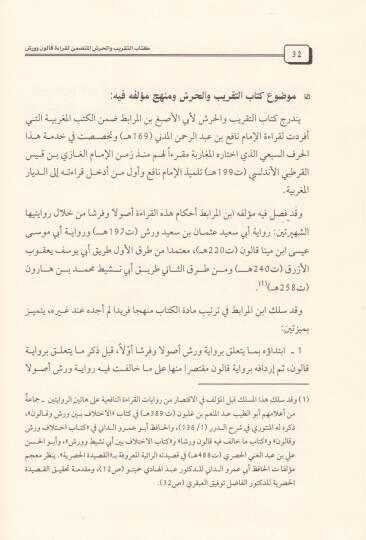 كتاب التقريب والحرش المتضمن لقراءة قالون وورش
32
موضوع كتاب التقريب والحرش ومنهج مؤلفه فيه:
يندرج كتاب التقريب والحرش لأبي الأصبغ بن المرابط ضمن الكتب المغربية التي
أفردت لقراءة الإمام نافع بن عبد الرحمن المدني (169هـ) وتخصصت في خدمة هذا
الحرف السبعي الذي اختاره المغاربة مقرءاً لهم منذ زمن الإمام الغازي بن قيس
القرطبي الأندلسي (ت199هـ) تلميذ الإمام نافع وأول من أدخل قراءته إلى الديار
المغربية.
وقد فصل فيه مؤلفه ابن المرابط أحكام هذه القراءة أصولا وفرشا من خلال روايتيها
الشهيرتين: رواية أبي سعيد عثمان بن سعيد ورش (ت197هـ) ورواية أبي موسى
عيسى ابن مينا قالون (ت220هـ)، معتمدا من طرق الأول طريق أبي يوسف يعقوب
الأزرق (ت240هـ) ومن طرق الثاني طريق أبي نشيط محمد بن هارون
(ت258هـ)(1).
وقد سلك ابن المرابط في ترتيب مادة الكتاب منهجا فريدا لم أجده عند غيره، يتميز
بميزتين:
1 - ابتداؤه بما يتعلق برواية ورش أصولا وفرشا أوّلاً، قبل ذكر ما يتعلق برواية
قالون، ثم إردافه برواية قالون مقتصرا منها على ما خالفت فيه رواية ورش أصولا
(1) وقد سلك هذا المسلك قبل المؤلف في الاقتصار من روايات القراءة النافعية على هاتين الروايتين - جماعةٌ
من أعلامهم أبو الطيب عبد المنعم بن غلبون (ت 389هـ) في كتاب «الاختلاف بين ورش وقالون»،
ذكره له المنتوري في شرح الدرر (1/ 136)، والحافظ أبو عمرو الداني في «كتاب اختلاف ورش
وقالون» و«كتاب ما خالف فيه قالون ورشا» و«كتاب الاختلاف بين أبي نشيط وورش»، وأبو الحسن
علي بن عبد الغني الحصري (ت488هـ) في قصيدته الرائية المعروفة بـ«القصيدة الحصرية». ينظر معجم
مؤلفات الحافظ أبي عمرو الداني للدكتور عبد الهادي حميتو (ص12)، ومقدمة تحقيق القصيدة
الحصرية للدكتور الفاضل توفيق العبقري (ص32).